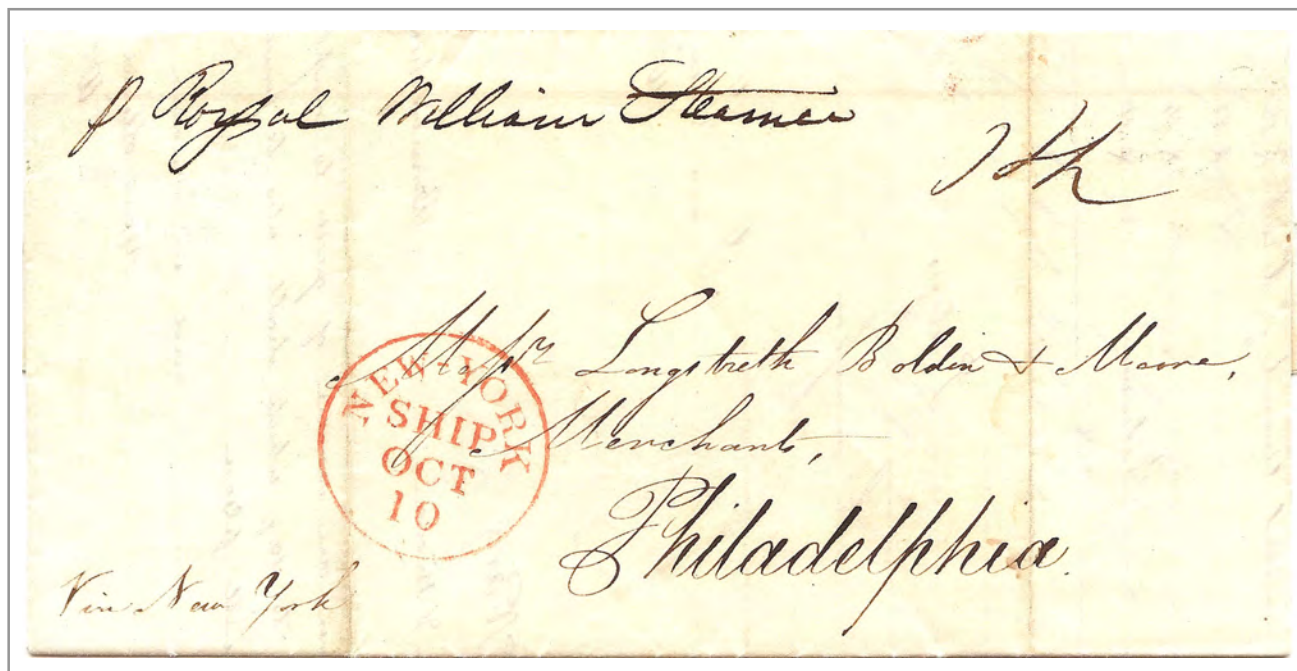 p Royal William Steamer
14½
Messrs Longstreth Bolden + Moore,
Merchants,
Philadelphia.
NEW-YORK
SHIP
OCT
10
Via New York